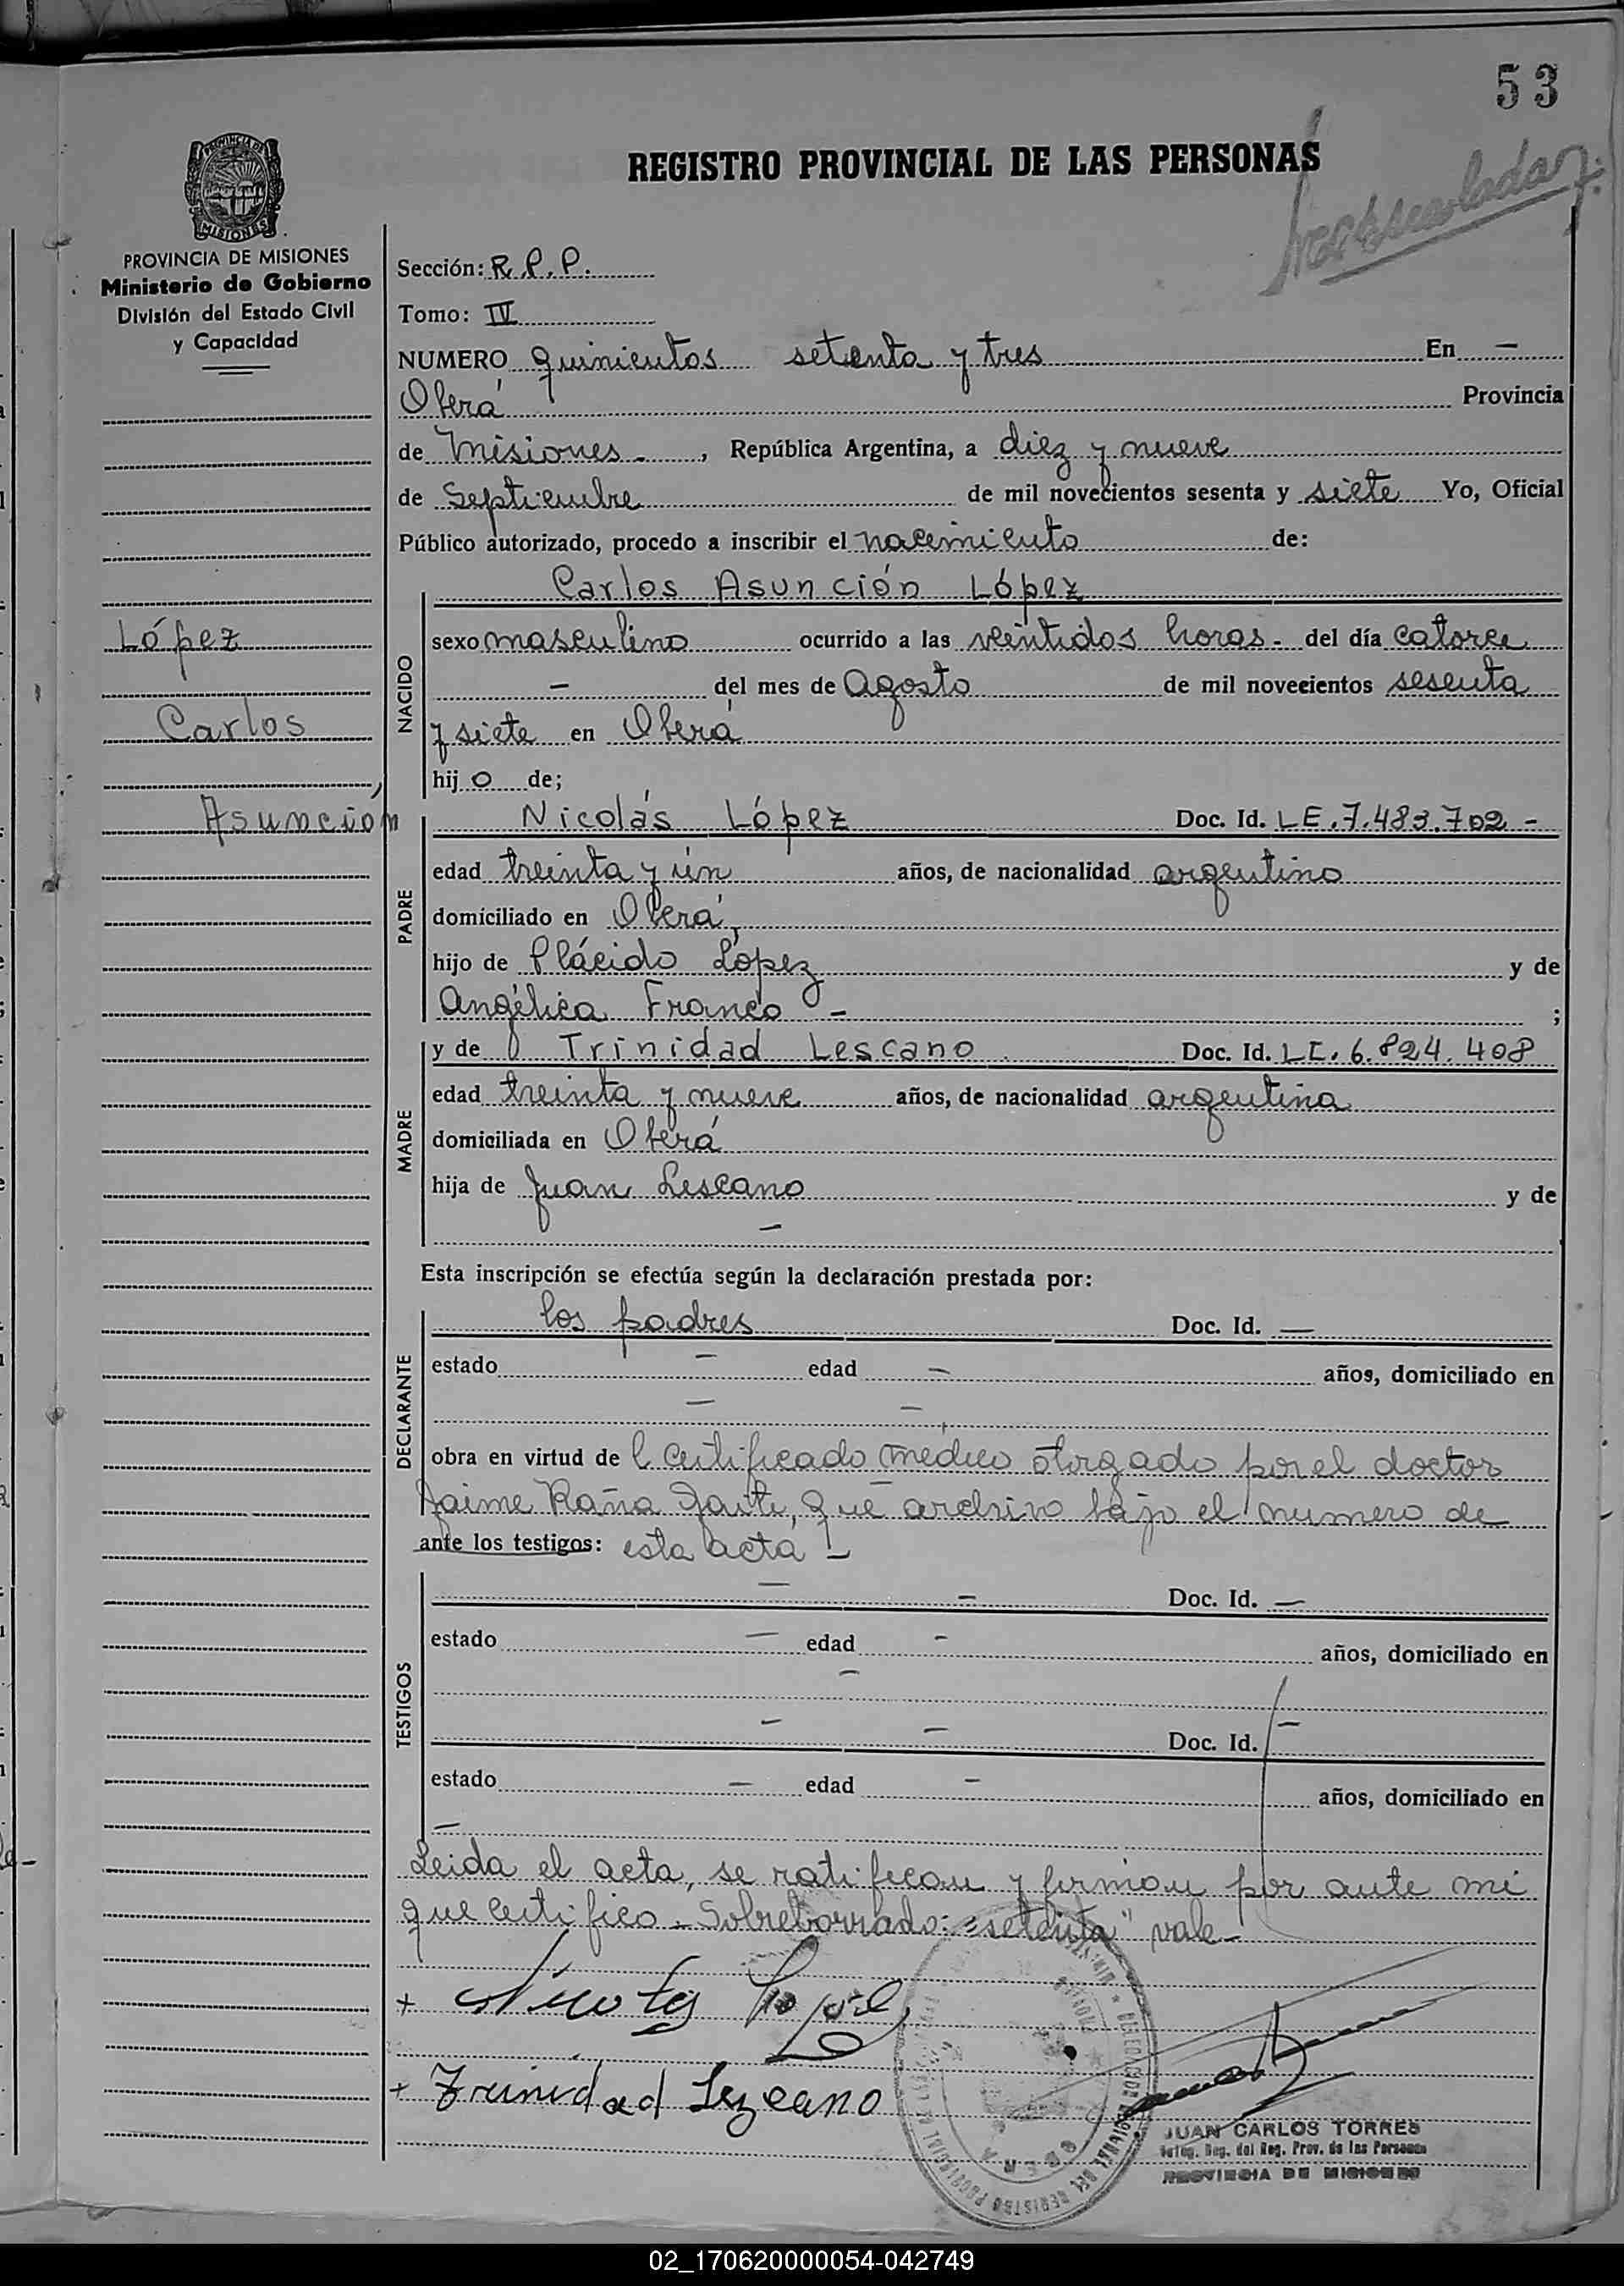 53
REGISTRO PROVINCIAL DE LAS PERSONAS
PROVINCIA DE MISIONES
MISIONES
PROVINCIA DE MISIONES
Ministerio de Gobierno
División del Estado Civil
y Capacidad
Sección: R.P.P.
Tomo: IV
NUMERO quinientos setenta y tres En —
Oberá Provincia
de Misiones - , República Argentina, a diez y nueve
de Septiembre de mil novecientos sesenta y siete Yo, Oficial
Público autorizado, procedo a inscribir el nacimiento de:
López
Carlos
Asunción
NACIDO
Carlos Asunción López
sexo masculino ocurrido a las veintidos horas - del día catorce
— del mes de Agosto de mil novecientos sesenta
y siete en Oberá
hijo de;
PADRE
Nicolás López Doc. Id. LE.7.483.702 -
edad treinta y un años, de nacionalidad argentino
domiciliado en Oberá,
hijo de Plácido López y de
Angélica Franco - ;
MADRE
y de Trinidad Lescano Doc. Id. LC.6.824.408
edad treinta y nueve años, de nacionalidad argentina
domiciliada en Oberá
hija de Juan Lescano y de
—
Esta inscripción se efectúa según la declaración prestada por:
DECLARANTE
los padres Doc. Id. —
estado — edad — años, domiciliado en
— —
obra en virtud de l certificado médico otorgado por el doctor
Jaime Raña , que archivo bajo el numero de
ante los testigos: esta acta -
TESTIGOS
— — Doc. Id. —
estado — edad — años, domiciliado en
—
— — Doc. Id. —
estado — edad — años, domiciliado en
—
Leida el acta, se ratifican y firman por ante mi
que certifico - Sobreborrado: "setenta" vale -
+ Nicolas Lopez
+ Trinidad Lezcano
OBERA
JUAN CARLOS TORRES
Deleg. Reg. del Reg. Prov. de las Personas
PROVINCIA DE MISIONES
02_170620000054-042749